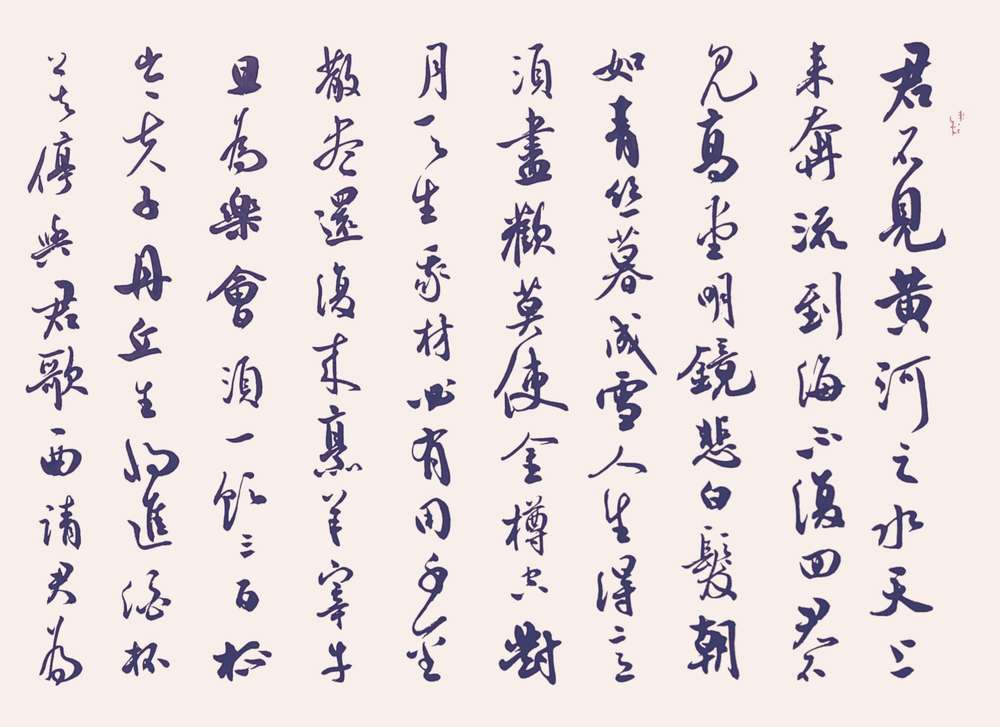 君不見黃河之水天上
来奔流到海不復回君不
見高堂明鏡悲白髮朝
如青丝暮成雪人生得意
須盡歡莫使金樽空對
月天生我材必有用千金
散尽還復来烹羊宰牛
且為樂會須一飲三百杯
岑夫子丹丘生将進酒杯
莫停與君歌一曲請君為